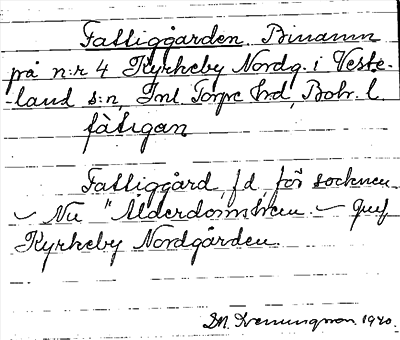 Fattiggården. Binamn
på n:r 4 Kyrkeby Nordg. i Veste-
-land s:n, Inl. Torpe hd, Boh. l.
fàtigan
Fattiggård, f d, för socknen
– Nu "Ålderdomshem. –
Kyrkeby Nordgården.
1920.